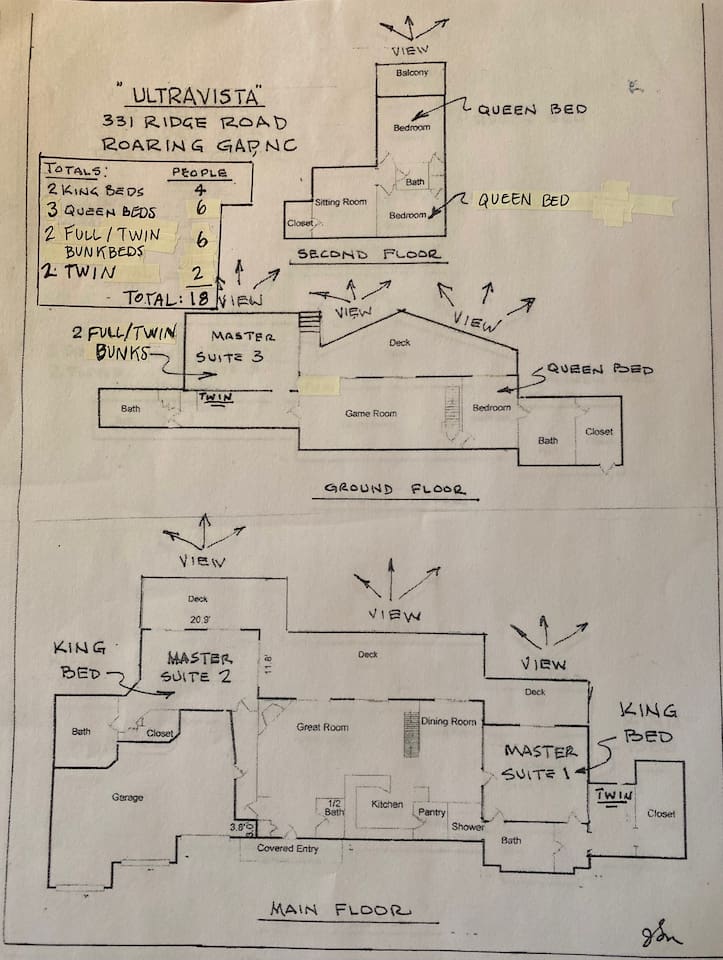 "ULTRAVISTA"
331 RIDGE ROAD
ROARING GAP, NC
TOTALS: PEOPLE
2 KING BEDS 4
3 QUEEN BEDS 6
2 FULL/TWIN BUNKBEDS 6
2 TWIN 2
TOTAL: 18
VIEW
Balcony
QUEEN BED
Bedroom
Bath
Sitting Room
Bedroom
QUEEN BED
Closet
SECOND FLOOR
VIEW
VIEW
VIEW
2 FULL/TWIN
BUNKS
MASTER
SUITE 3
Deck
QUEEN BED
TWIN
Bath
Game Room
Bedroom
Bath
Closet
GROUND FLOOR
VIEW
VIEW
VIEW
Deck
20.9'
KING
BED
MASTER
SUITE 2
11.8'
Deck
Deck
KING
BED
Bath
Closet
Great Room
Dining Room
MASTER
SUITE 1
TWIN
Garage
1/2
Bath
Kitchen
Pantry
Shower
Closet
3.6'
Bath
Covered Entry
MAIN FLOOR